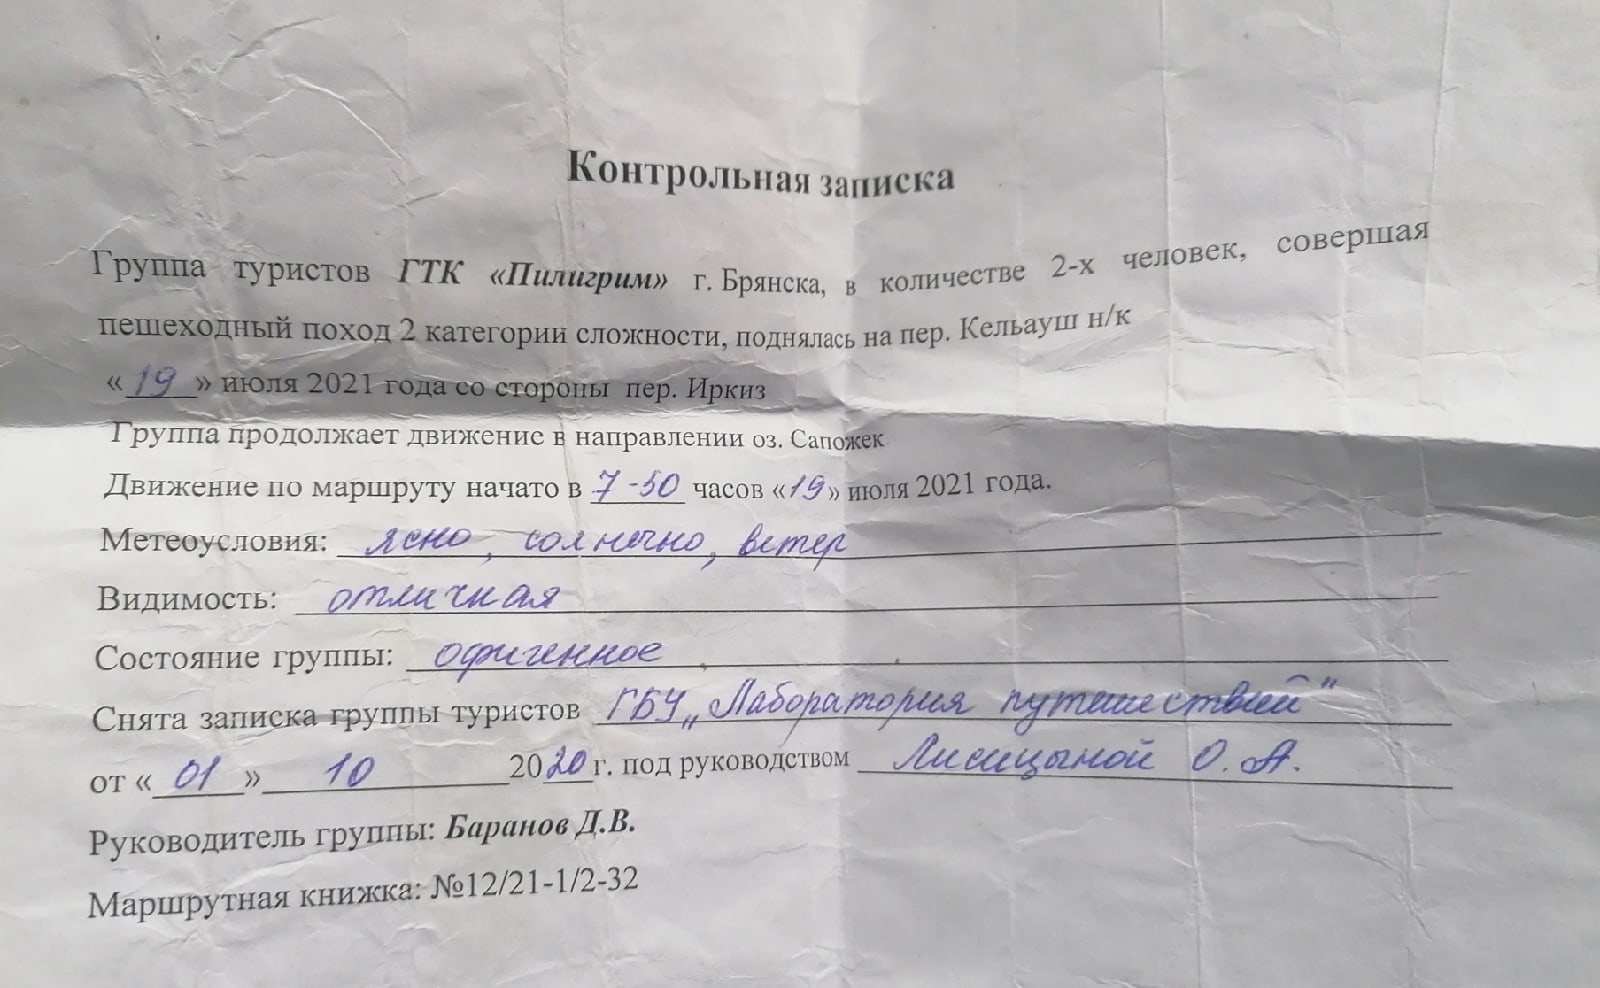 Контрольная записка
Группа туристов ГТК «Пилигрим» г. Брянска, в количестве 2-х человек, совершая
пешеходный поход 2 категории сложности, поднялась на пер. Кельауш н/к
«19» июля 2021 года со стороны пер. Иркиз
Группа продолжает движение в направлении оз. Сапожек
Движение по маршруту начато в 7-50 часов «19» июля 2021 года.
Метеоусловия: ясно, солнечно, ветер
Видимость: отличная
Состояние группы: офигенное
Снята записка группы туристов ГБУ „Лаборатория путешествий"
от «01» 10 2020 г. под руководством Лисицыной О. А.
Руководитель группы: Баранов Д.В.
Маршрутная книжка: №12/21-1/2-32